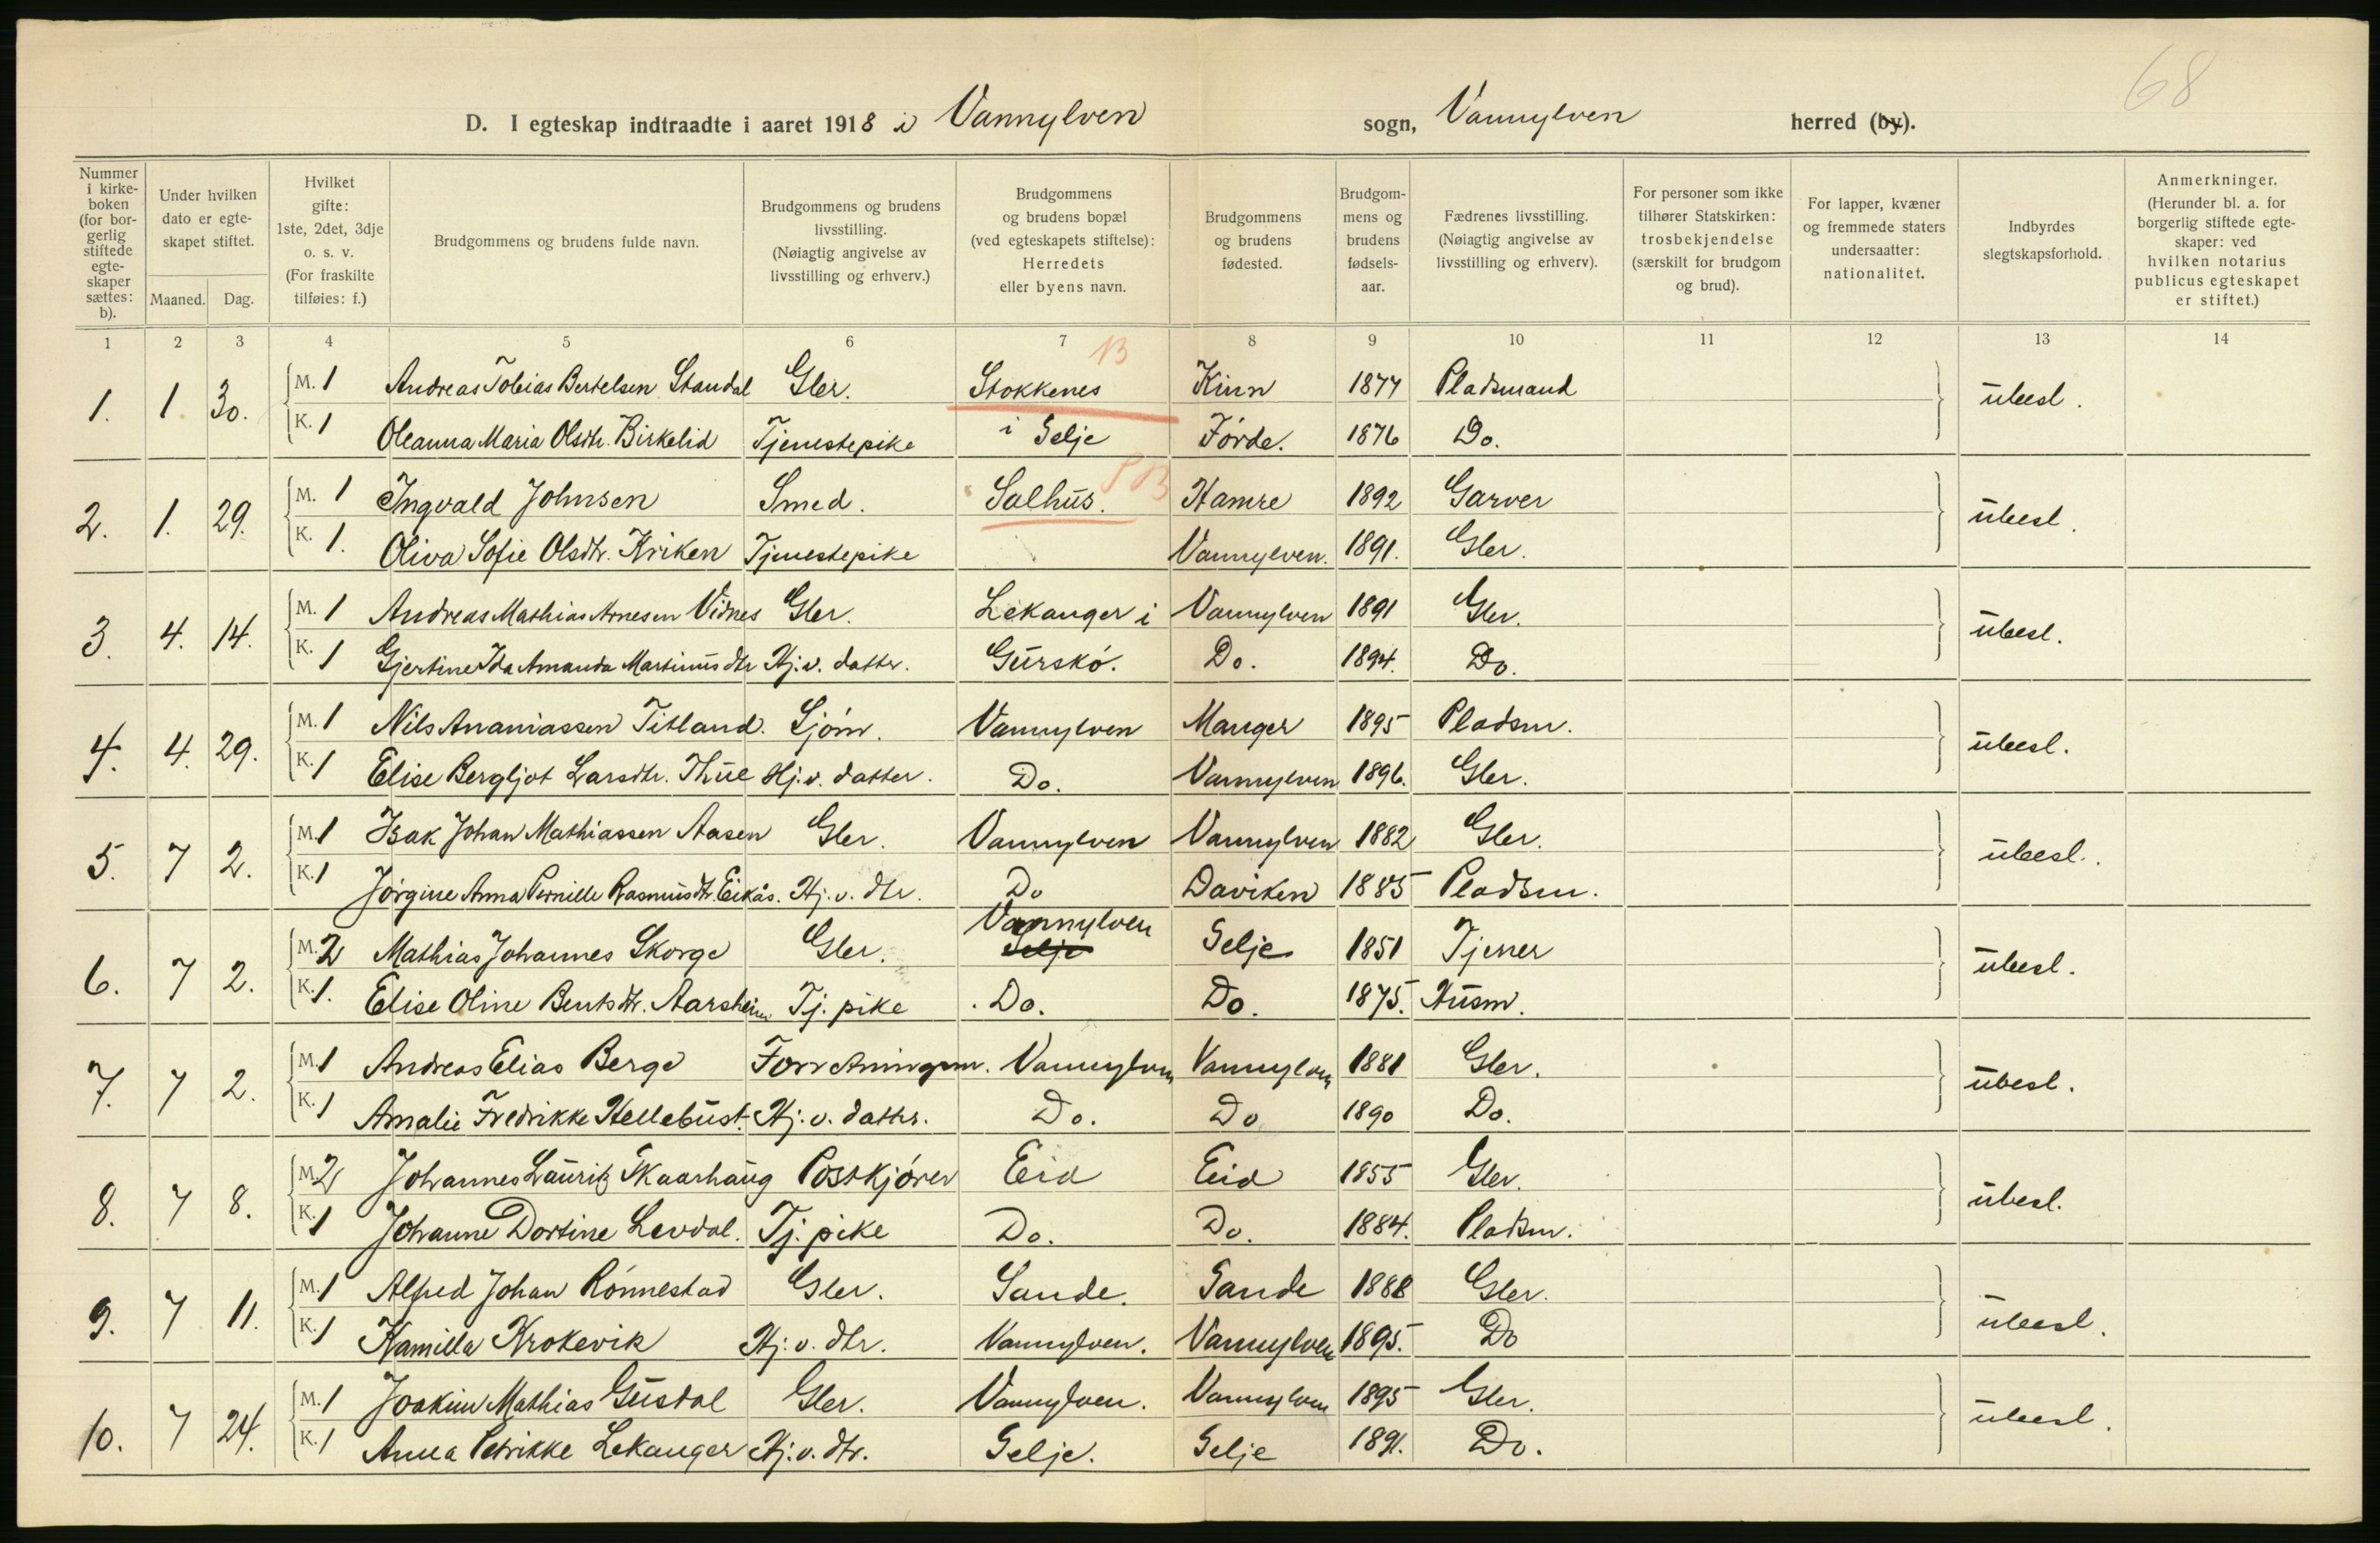 68
D. I egteskap indtraadte i aaret 1918 i Vannylven sogn, Vannylven herred (by).
Nummer i kirkeboken (for borgerlig stiftede egteskaper sættes: b).
Under hvilken dato er egteskapet stiftet.
Maaned. Dag.
Hvilket gifte: 1ste, 2det, 3dje o. s. v. (For fraskilte tilføies: f.)
Brudgommens og brudens fulde navn.
Brudgommens og brudens livsstilling. (Nøiagtig angivelse av livsstilling og erhverv.)
Brudgommens og brudens bopæl (ved egteskapets stiftelse): Herredets eller byens navn.
Brudgommens og brudens fødested.
Brudgommens og brudens fødselsaar.
Fædrenes livsstilling. (Nøiagtig angivelse av livsstilling og erhverv).
For personer som ikke tilhører Statskirken: trosbekjendelse (særskilt for brudgom og brud).
For lapper, kvæner og fremmede staters undersaatter: nationalitet.
Indbyrdes slegtskapsforhold.
Anmerkninger. (Herunder bl. a. for borgerlig stiftede egteskaper: ved hvilken notarius publicus egteskapet er stiftet.)
1 2 3 4 5 6 7 8 9 10 11 12 13 14
B
1. 1 30. M. 1 Andreas Tobias Bertelsen Standal Gbr. Stokkenes Kinn 1877 Pladsmand ubesl.
K. 1 Oleanna Maria Olsdtr. Birkelid Tjenestepike i Selje Førde. 1876 Do.
SB
2. 1. 29. M. 1 Ingvald Johnsen Smed. Salhus. Hamre 1892 Garver ubesl.
K. 1. Oliva Sofie Olsdtr. Kriken Tjenestepike Vannylven. 1891. Gbr.
3. 4. 14. M. 1 Andreas Mathias Arnesen Vidnes Gbr. Lekanger i Vannylven 1891 Gbr. ubesl.
K. 1 Gjertine Ida Amanda Martinusdtr Hj. v. datter. Gurskø. Do. 1894. Do.
4. 4. 29. M. 1 Nils Ananiassen Titland. Sjøm. Vannylven Manger 1895 Pladsm. ubesl.
K. 1 Elise Bergljot Larsdtr. Thue Hj. v. datter. Do. Vannylven 1896. Gbr.
5. 7 2. M. 1 Isak Johan Mathiassen Aasen Gbr. Vannylven Vannylven 1882 Gbr. ubesl.
K. 1 Jørgine Anna Pernille Rasmusdtr. Eikås. Hj. v. dtr. Do Daviken 1885 Pladsm.
Vannylven
6. 7 2. M. 2 Mathias Johannes Skorge Gbr. Selje Selje 1851 Tjener ubesl.
K. 1. Elise Oline Bentsdtr. Aarsheim Tj. pike Do. Do. 1875. Husm.
7. 7 2. M. 1 Andreas Elias Berge Forretningsm. Vannylven Vannylven 1881 Gbr. ubesl.
K. 1 Amalie Fredrikke Hellebust. Hj. v. datter. Do. Do 1890 Do.
8. 7 8. M. 2 Johannes Lauritz Skaarhaug Postkjører Eid Eid 1855 Gbr. ubesl.
K. 1 Johanne Dortine Levdal. Tj. pike Do. Do. 1884. Pladsm.
9. 7 11. M. 1 Alfred Johan Rønnestad Gbr. Sande. Sande 1888 Gbr. ubesl.
K. 1 Kamilla Krokevik Hj. v. dtr. Vannylven. Vannylven 1895. Do
10. 7 24. M. 1 Joakim Mathias Gusdal Gbr. Vannylven. Vannylven 1895 Gbr. ubesl.
K. 1 Anna Petrikke Lekanger Hj. v. dtr. Selje. Selje 1891. Do.